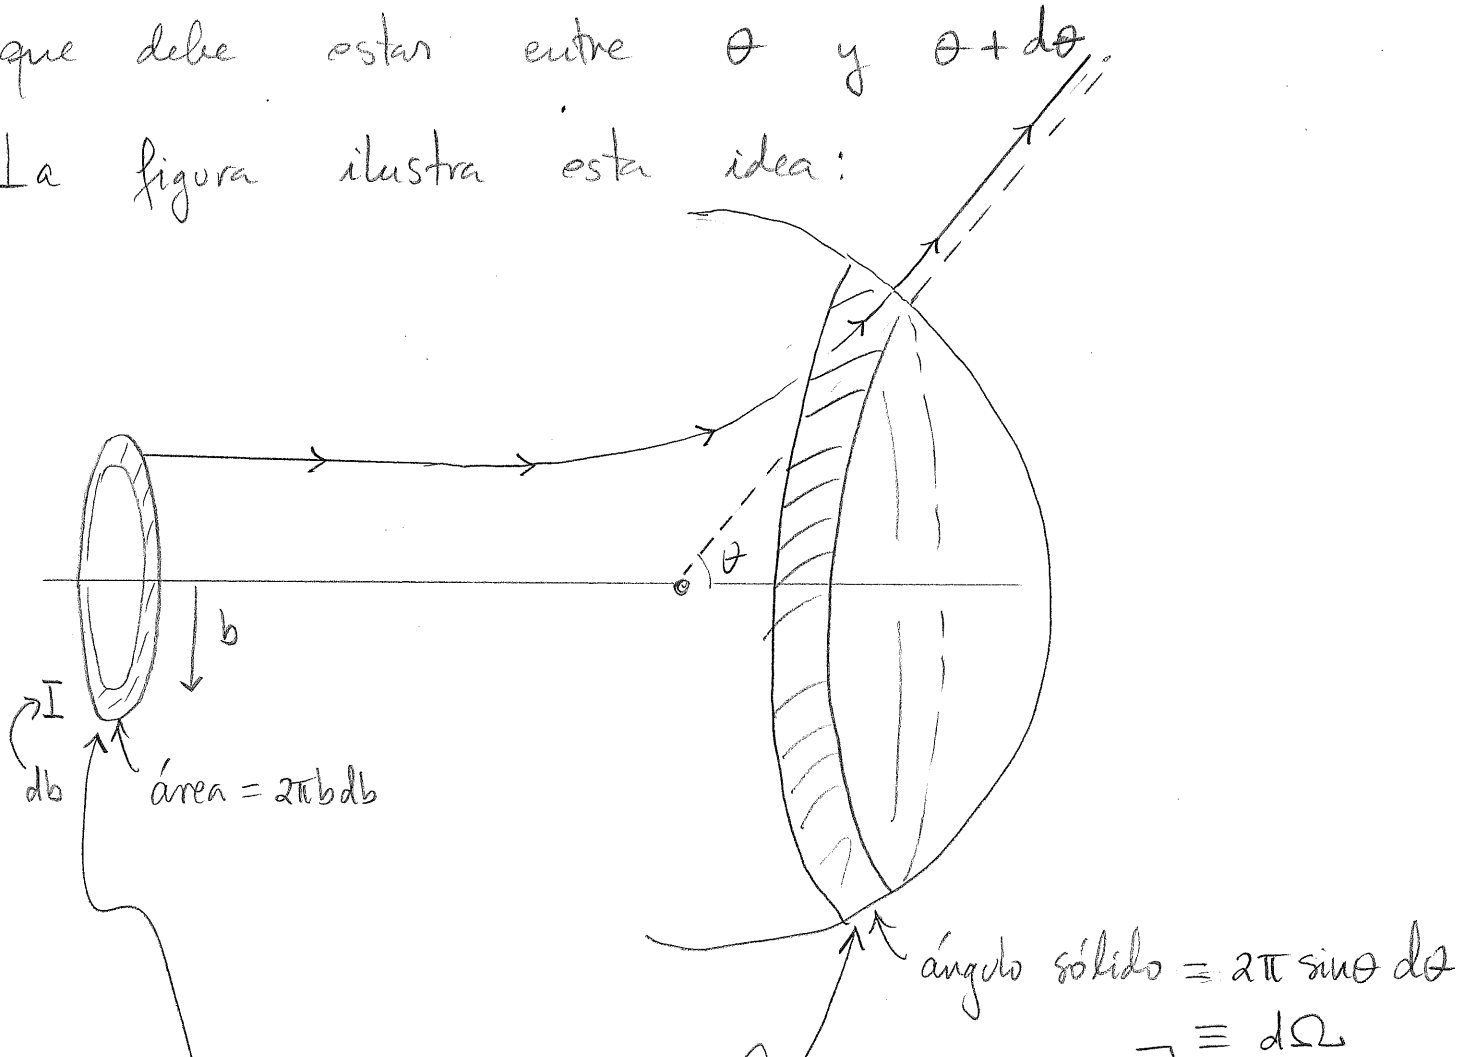 que debe estar entre θ y θ + dθ.
La figura ilustra esta idea:
θ
b
I
db
área = 2πbdb
ángulo sólido = 2π sinθ dθ
≡ dΩ